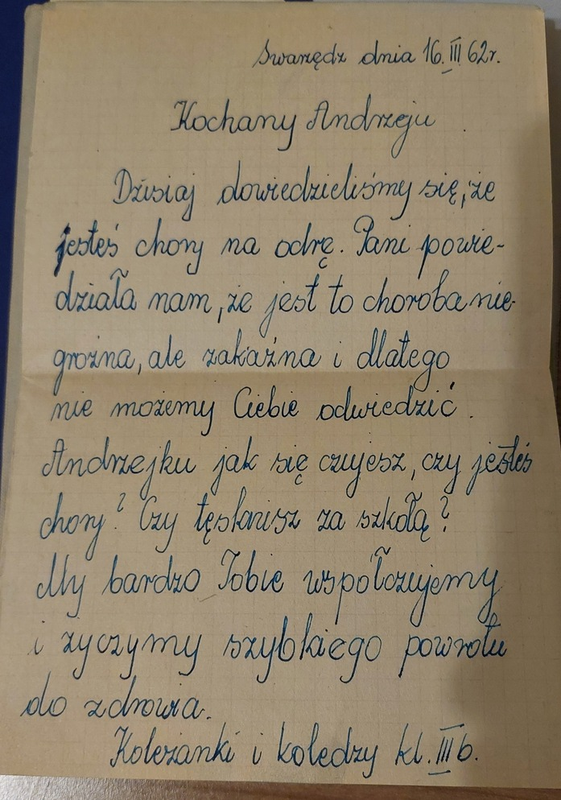 Swarzędz dnia 16.III 62r.
Kochany Andrzeju
Dzisiaj dowiedzieliśmy się, że
jesteś chory na odrę. Pani powie-
działa nam, że jest to choroba nie-
groźna, ale zakaźna i dlatego
nie możemy Ciebie odwiedzić.
Andrzejku jak się czujesz, czy jesteś
chory? Czy tęsknisz za szkołą?
My bardzo Tobie współczujemy
i życzymy szybkiego powrotu
do zdrowia.
Koleżanki i koledzy kl. III b.